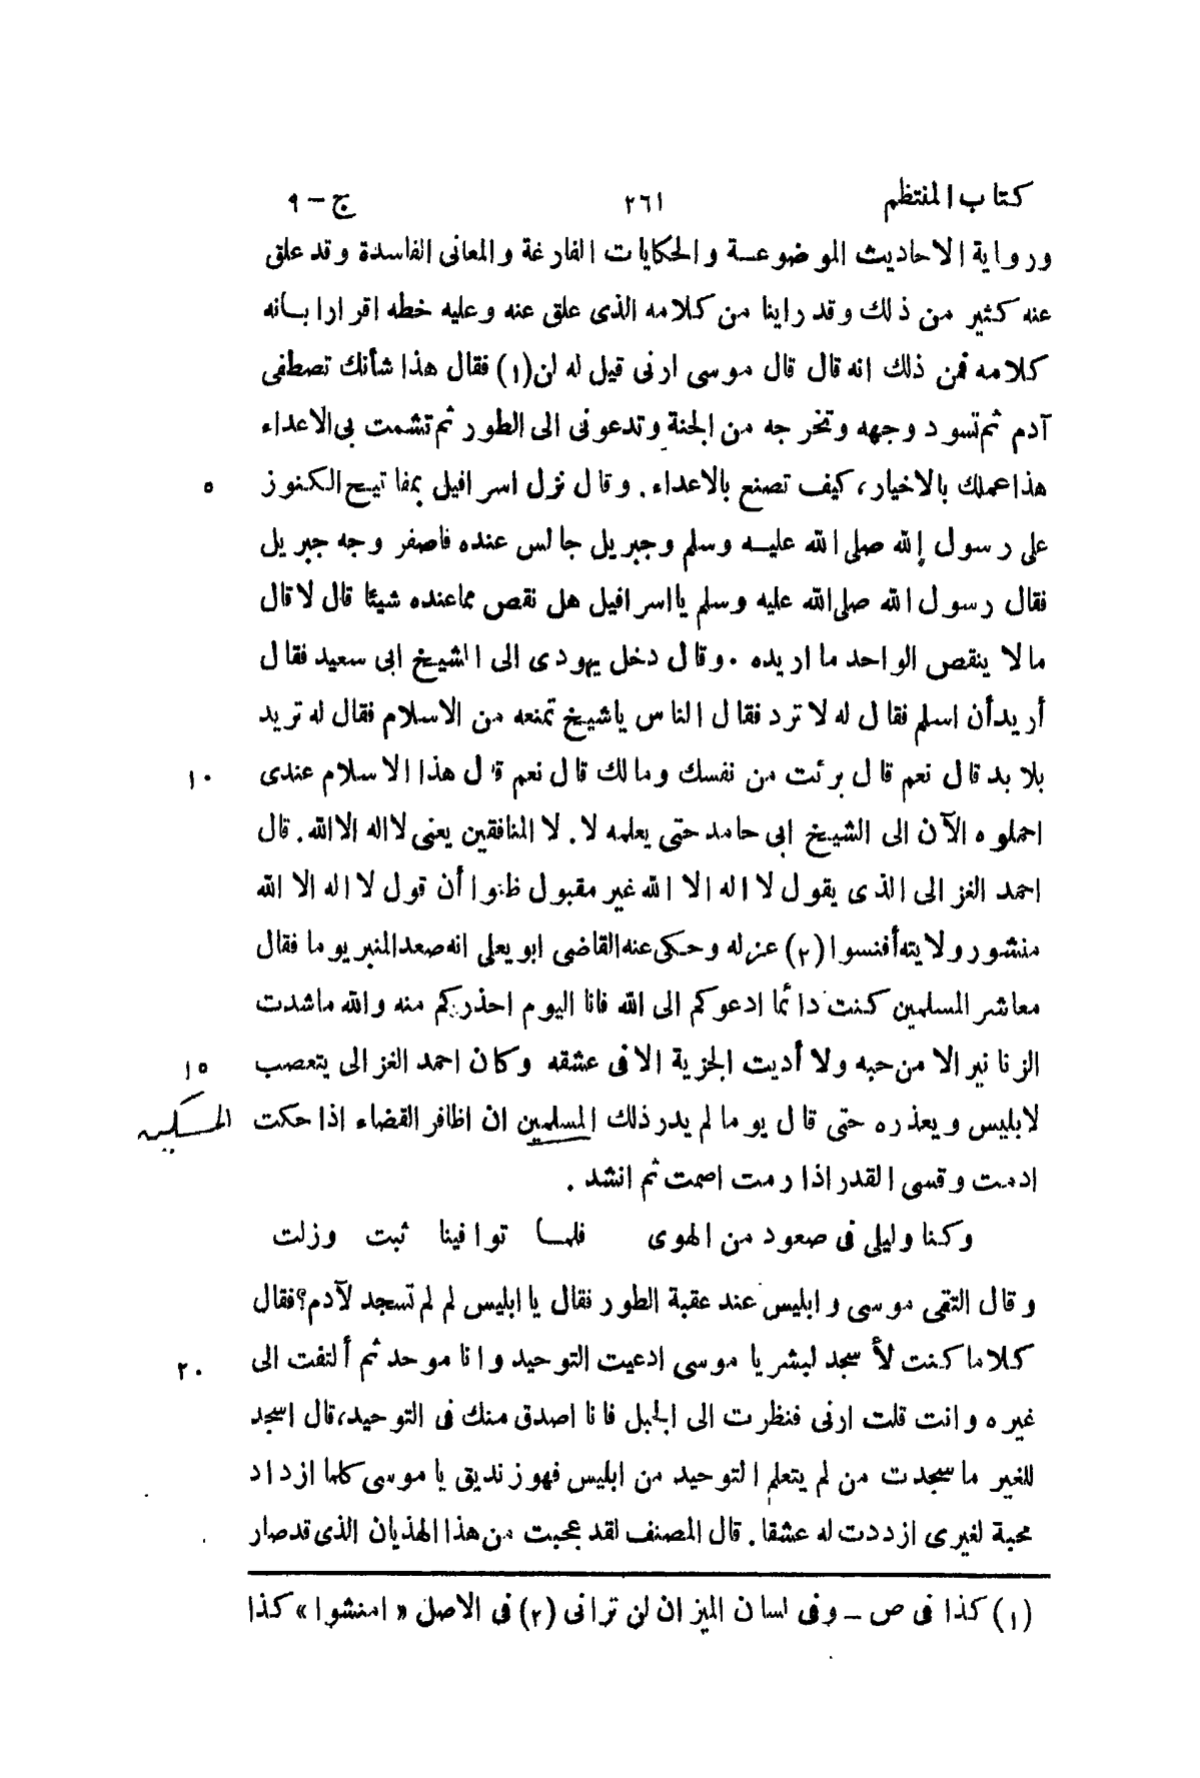 كتاب المنتظم ٢٦١ ج – ٩
ورواية الاحاديث الموضوعة والحكايات الفارغة والمعانى الفاسدة وقد علق
عنه كثير من ذلك وقد راينا من كلامه الذى علق عنه وعليه خطه اقرارا بانه
كلامه فمن ذلك انه قال قال موسى ارنى قيل له لن (١) فقال هذا شأنك تصطفى
آدم ثم تسود وجهه وتخرجه من الجنة وتدعونى الى الطور ثم تشمت بى الاعداء
هذا عملك بالاخيار، كيف تصنع بالاعداء. وقال نزل اسرافيل بمفاتيح الكنوز ٥
على رسول الله صلى الله عليه وسلم وجبريل جالس عنده فاصفر وجه جبريل
فقال رسول الله صلى الله عليه وسلم يا اسرافيل هل نقص مما عنده شيئا قال لا قال
ما لا ينقص الواحد ما اريده . وقال دخل يهودى الى الشيخ ابى سعيد فقال
أريد أن اسلم فقال له لا ترد فقال الناس ياشيخ تمنعه من الاسلام فقال له تريد
بلا بد قال نعم قال برئت من نفسك ومالك قال نعم قال هذا الاسلام عندى ١٠
احملوه الآن الى الشيخ ابى حامد حتى يعلمه لا . لا المنافقين يعنى لا اله الا الله . قال
احمد الغزالى الذى يقول لا اله الا الله غير مقبول ظنوا أن قول لا اله الا الله
منشور ولايته أفنسوا (٢) عزله وحكى عنه القاضى ابو يعلى انه صعد المنبر يوما فقال
معاشر المسلمين كنت دائما ادعوكم الى الله فانا اليوم احذركم منه والله ماشدت
الزنانير الا من حبه ولا أديت الجزية الا فى عشقه وكان احمد الغزالى يتعصب ١٥
لابليس ويعذره حتى قال يوما لم يدر ذلك المسلمين ان اظافر القضاء اذا حكت المسكين
ادمت وقسى القدر اذا رمت اصمت ثم انشد .
وكنا وليلى فى صعود من الهوى فلما توافينا ثبت وزلت
وقال التقى موسى وابليس عند عقبة الطور فقال يا ابليس لم لم تسجد لآدم؟ فقال
كلا ما كنت لأسجد لبشر يا موسى ادعيت التوحيد وانا موحد ثم ألتفت الى ٢٠
غيره وانت قلت ارنى فنظرت الى الجبل فانا اصدق منك فى التوحيد، قال اسجد
للغير ما سجدت من لم يتعلم التوحيد من ابليس فهو زنديق يا موسى كلما ازداد
محبة لغيرى ازددت له عشقا . قال المصنف لقد عجبت من هذا الهذيان الذى قد صار
(١) كذا فى ص – وفى لسان الميزان لن ترانى (٢) فى الاصل « امنشوا » كذا